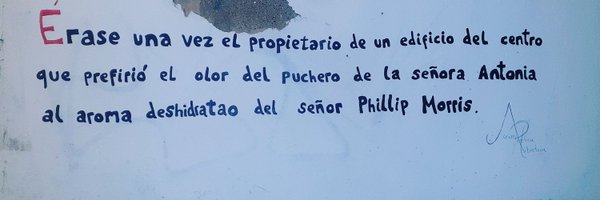 Érase una vez el propietario de un edificio del centro
que prefirió el olor del puchero de la señora Antonia
al aroma deshidratao del señor Phillip Morris.